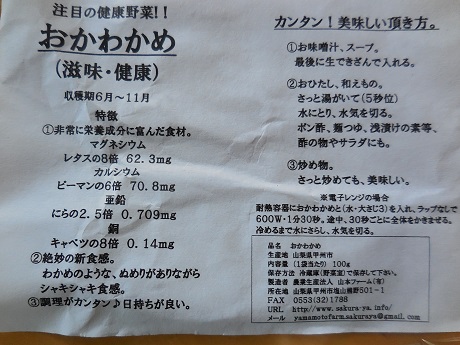 注目の健康野菜!!
おかわかめ
(滋味・健康)
収穫期6月～11月
特徴
①非常に栄養成分に富んだ食材。
マグネシウム
レタスの8倍 62.3mg
カルシウム
ピーマンの6倍 70.8mg
亜鉛
にらの2.5倍 0.709mg
銅
キャベツの8倍 0.14mg
②絶妙の新食感。
わかめのような、ぬめりがありながら
シャキシャキ食感。
③調理がカンタン♪日持ちが良い。
カンタン!美味しい頂き方。
①お味噌汁、スープ。
最後に生できざんで入れる。
②おひたし、和えもの。
さっと湯がいて(5秒位)
水にとり、水気を切る。
ポン酢、麺つゆ、浅漬けの素等、
酢の物やサラダにも。
③炒め物。
さっと炒めても、美味しい。
※電子レンジの場合
耐熱容器におかわかめと(水・大さじ3)を入れ、ラップなしで
600W・1分30秒。途中、30秒ごとに全体をかきまぜる。
冷めるまで水にさらし、水気を切る。
品名 おかわかめ
生産地 山梨県甲州市
内容量 (1袋当たり) 100g
保存方法 冷蔵庫(野菜室)で保存して下さい。
製造者 農業生産法人 山本ファーム(有)
所在地 山梨県甲州市塩山熊野501-1
FAX 0553(32)1788
URL http://www.sakura-ya.info/
メール yamamotofarm.sakuraya@gmail.com